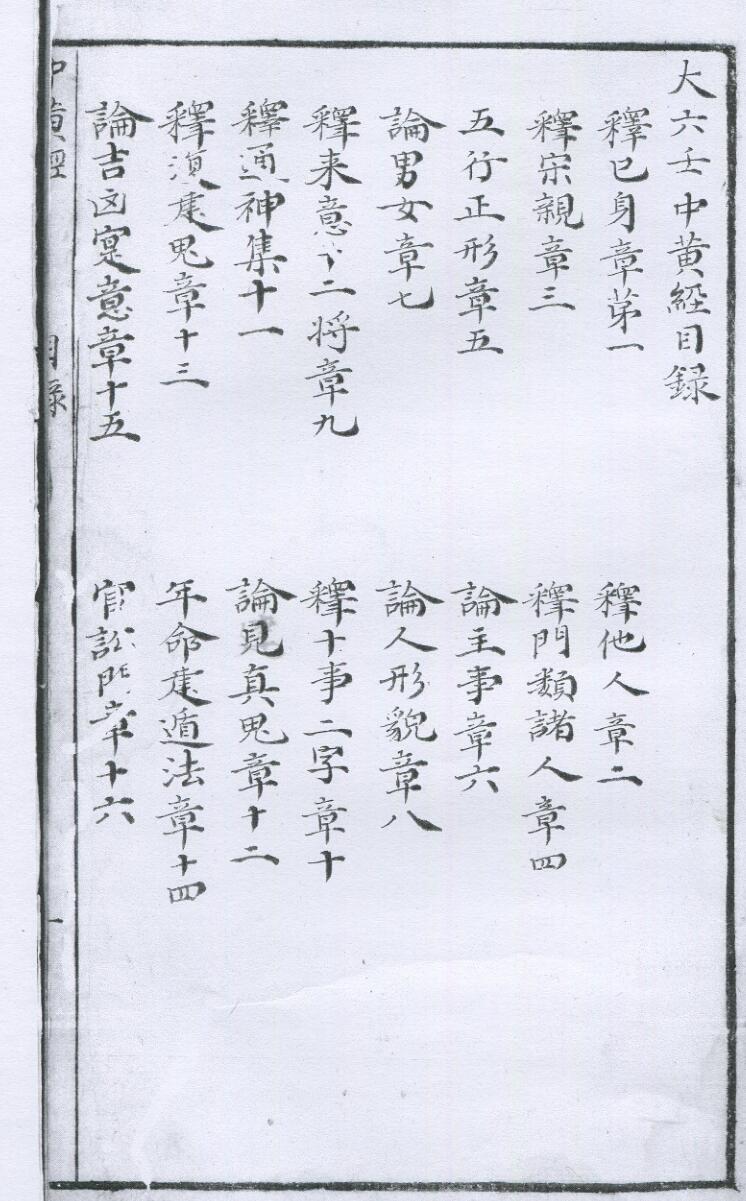 大六壬中黃經目録
釋己身章苐一
釋他人章二
釋宗親章三
釋門類諸人章四
五行正形章五
論主事章六
論男女章七
論人形貌章八
釋来意十二将章九
釋十事二字章十
釋通神集十一
論見真鬼章十二
釋復建鬼章十三
年命建遁法章十四
論吉凶寔意章十五
官訟門章十六
中黃經
目録
一